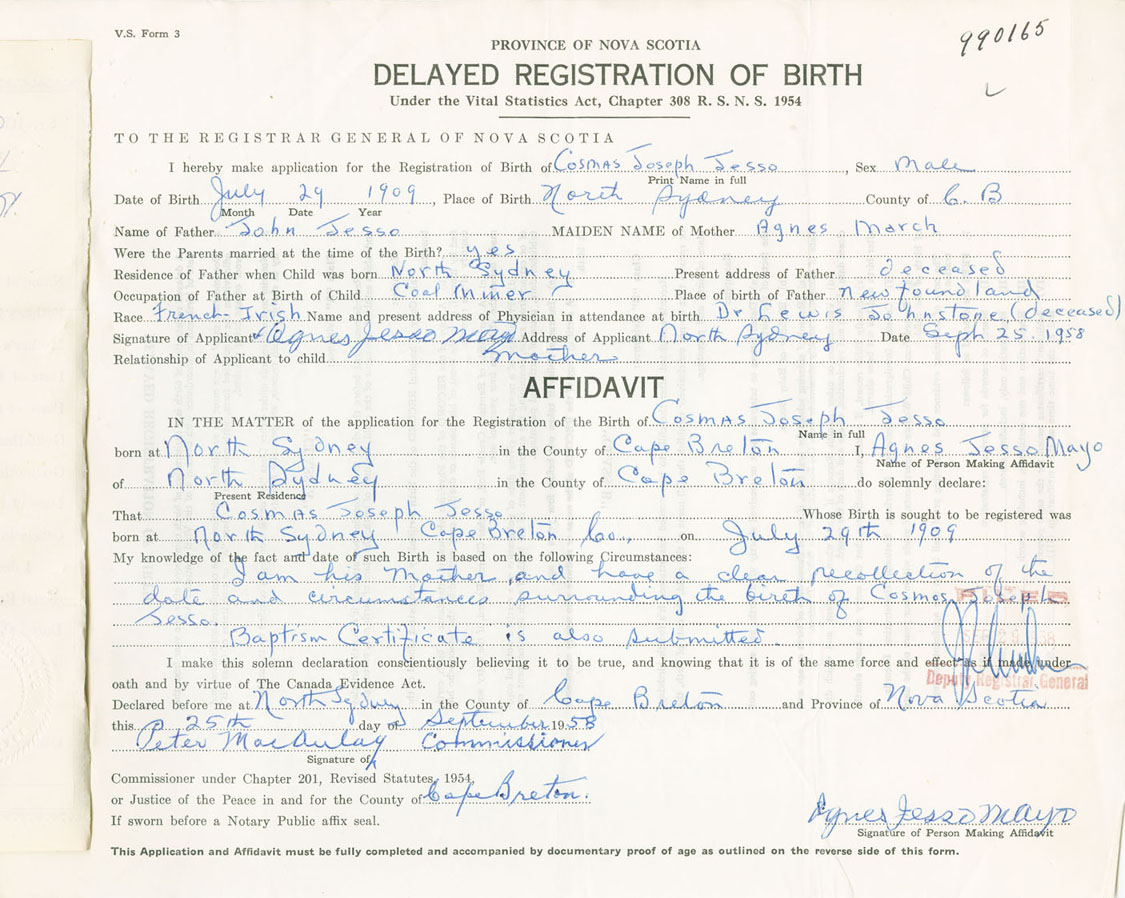 V.S. Form 3
990165
PROVINCE OF NOVA SCOTIA
DELAYED REGISTRATION OF BIRTH
Under the Vital Statistics Act, Chapter 308 R. S. N. S. 1954
TO THE REGISTRAR GENERAL OF NOVA SCOTIA
I hereby make application for the Registration of Birth of Cosmas Joseph Jesso, Sex Male
Print Name in full
Date of Birth July 29 1909, Place of Birth North Sydney County of C. B
Month Date Year
Name of Father John Jesso MAIDEN NAME of Mother Agnes March
Were the Parents married at the time of the Birth? yes
Residence of Father when Child was born North Sydney Present address of Father deceased
Occupation of Father at Birth of Child Coal Miner Place of birth of Father newfoundland
Race French-Irish Name and present address of Physician in attendance at birth Dr Lewis Johnstone (deceased)
Signature of Applicant Agnes Jesso Mayo Address of Applicant North Sydney Date Sept 25. 1958
Relationship of Applicant to child mother
AFFIDAVIT
IN THE MATTER of the application for the Registration of the Birth of Cosmas Joseph Jesso
Name in full
born at North Sydney in the County of Cape Breton I, Agnes Jesso Mayo
Name of Person Making Affidavit
of North Sydney in the County of Cape Breton do solemnly declare:
Present Residence
That Cosmas Joseph Jesso Whose Birth is sought to be registered was
born at North Sydney Cape Breton Co., on July 29th 1909
My knowledge of the fact and date of such Birth is based on the following Circumstances:
I am his Mother, and have a clear recollection of the
date and circumstances surrounding the birth of Cosmas Joseph
Jesso.
Baptism Certificate is also submitted.
FILED
I make this solemn declaration conscientiously believing it to be true, and knowing that it is of the same force and effect as if made under
oath and by virtue of The Canada Evidence Act.
Deputy Registrar General
Declared before me at North Sydney in the County of Cape Breton and Province of Nova Scotia
this 25th day of September 1958
Peter MacAulay Commissioner
Signature of
Commissioner under Chapter 201, Revised Statutes, 1954,
or Justice of the Peace in and for the County of Cape Breton.
If sworn before a Notary Public affix seal.
Agnes Jesso Mayo
Signature of Person Making Affidavit
This Application and Affidavit must be fully completed and accompanied by documentary proof of age as outlined on the reverse side of this form.